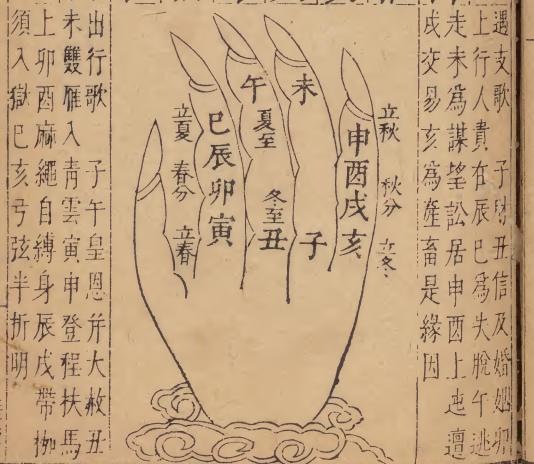 遇支歌　子財丑信及婚姻卯
上行人貴在辰巳爲失脫午逃
走未爲謀望訟居申酉上迍邅
戌交易亥爲產畜是緣因
立秋　秋分　立冬
申酉戌亥
未　子
午
夏至　冬至
丑
巳辰卯寅
立夏　春分　立春
出行歌　子午皇恩并大赦丑
未雙雁入青雲寅申登程扶馬
上卯酉麻繩自縛身辰戌帶枷
須入獄巳亥弓弦半折明